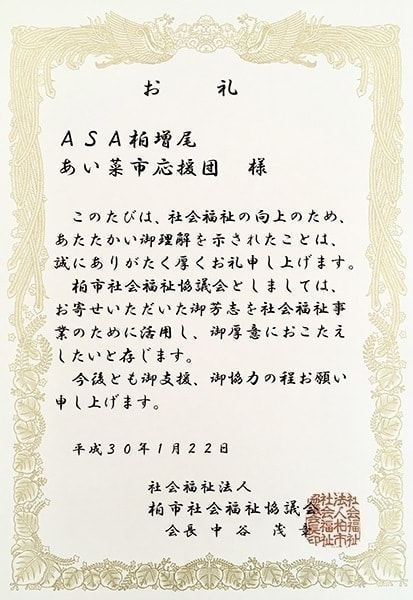 お　礼
ＡＳＡ柏増尾
あい菜市応援団　様
このたびは、社会福祉の向上のため、
あたたかい御理解を示されたことは、
誠にありがたく厚くお礼申し上げます。
柏市社会福祉協議会としましては、
お寄せいただいた御芳志を社会福祉事
業のために活用し、御厚意におこたえ
したいと存じます。
今後とも御支援、御協力の程お願い
申し上げます。
平成３０年１月２２日
社会福祉法人
柏市社会福祉協議会
会長 中谷　茂章